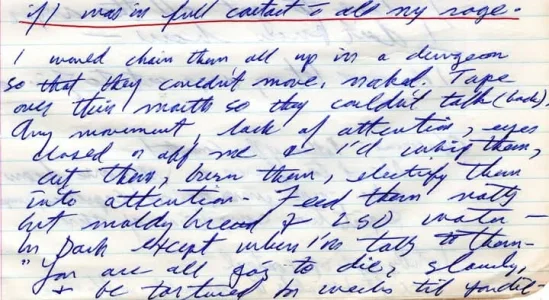 if I was in full contact to all my rage -
I would chain them all up in a dungeon
so that they couldn't move, naked. Tape
over their mouth so they couldn't talk (back).
Any movement, lack of attention, eyes
closed or off me & I'd whip them,
cut them, burn them, electrify them
into attention - Feed them nothing
but moldy bread & LSD water -
In Dark except when I'm talkg to them -
"You are all goig to die, slowly,
& be tortured for weeks til